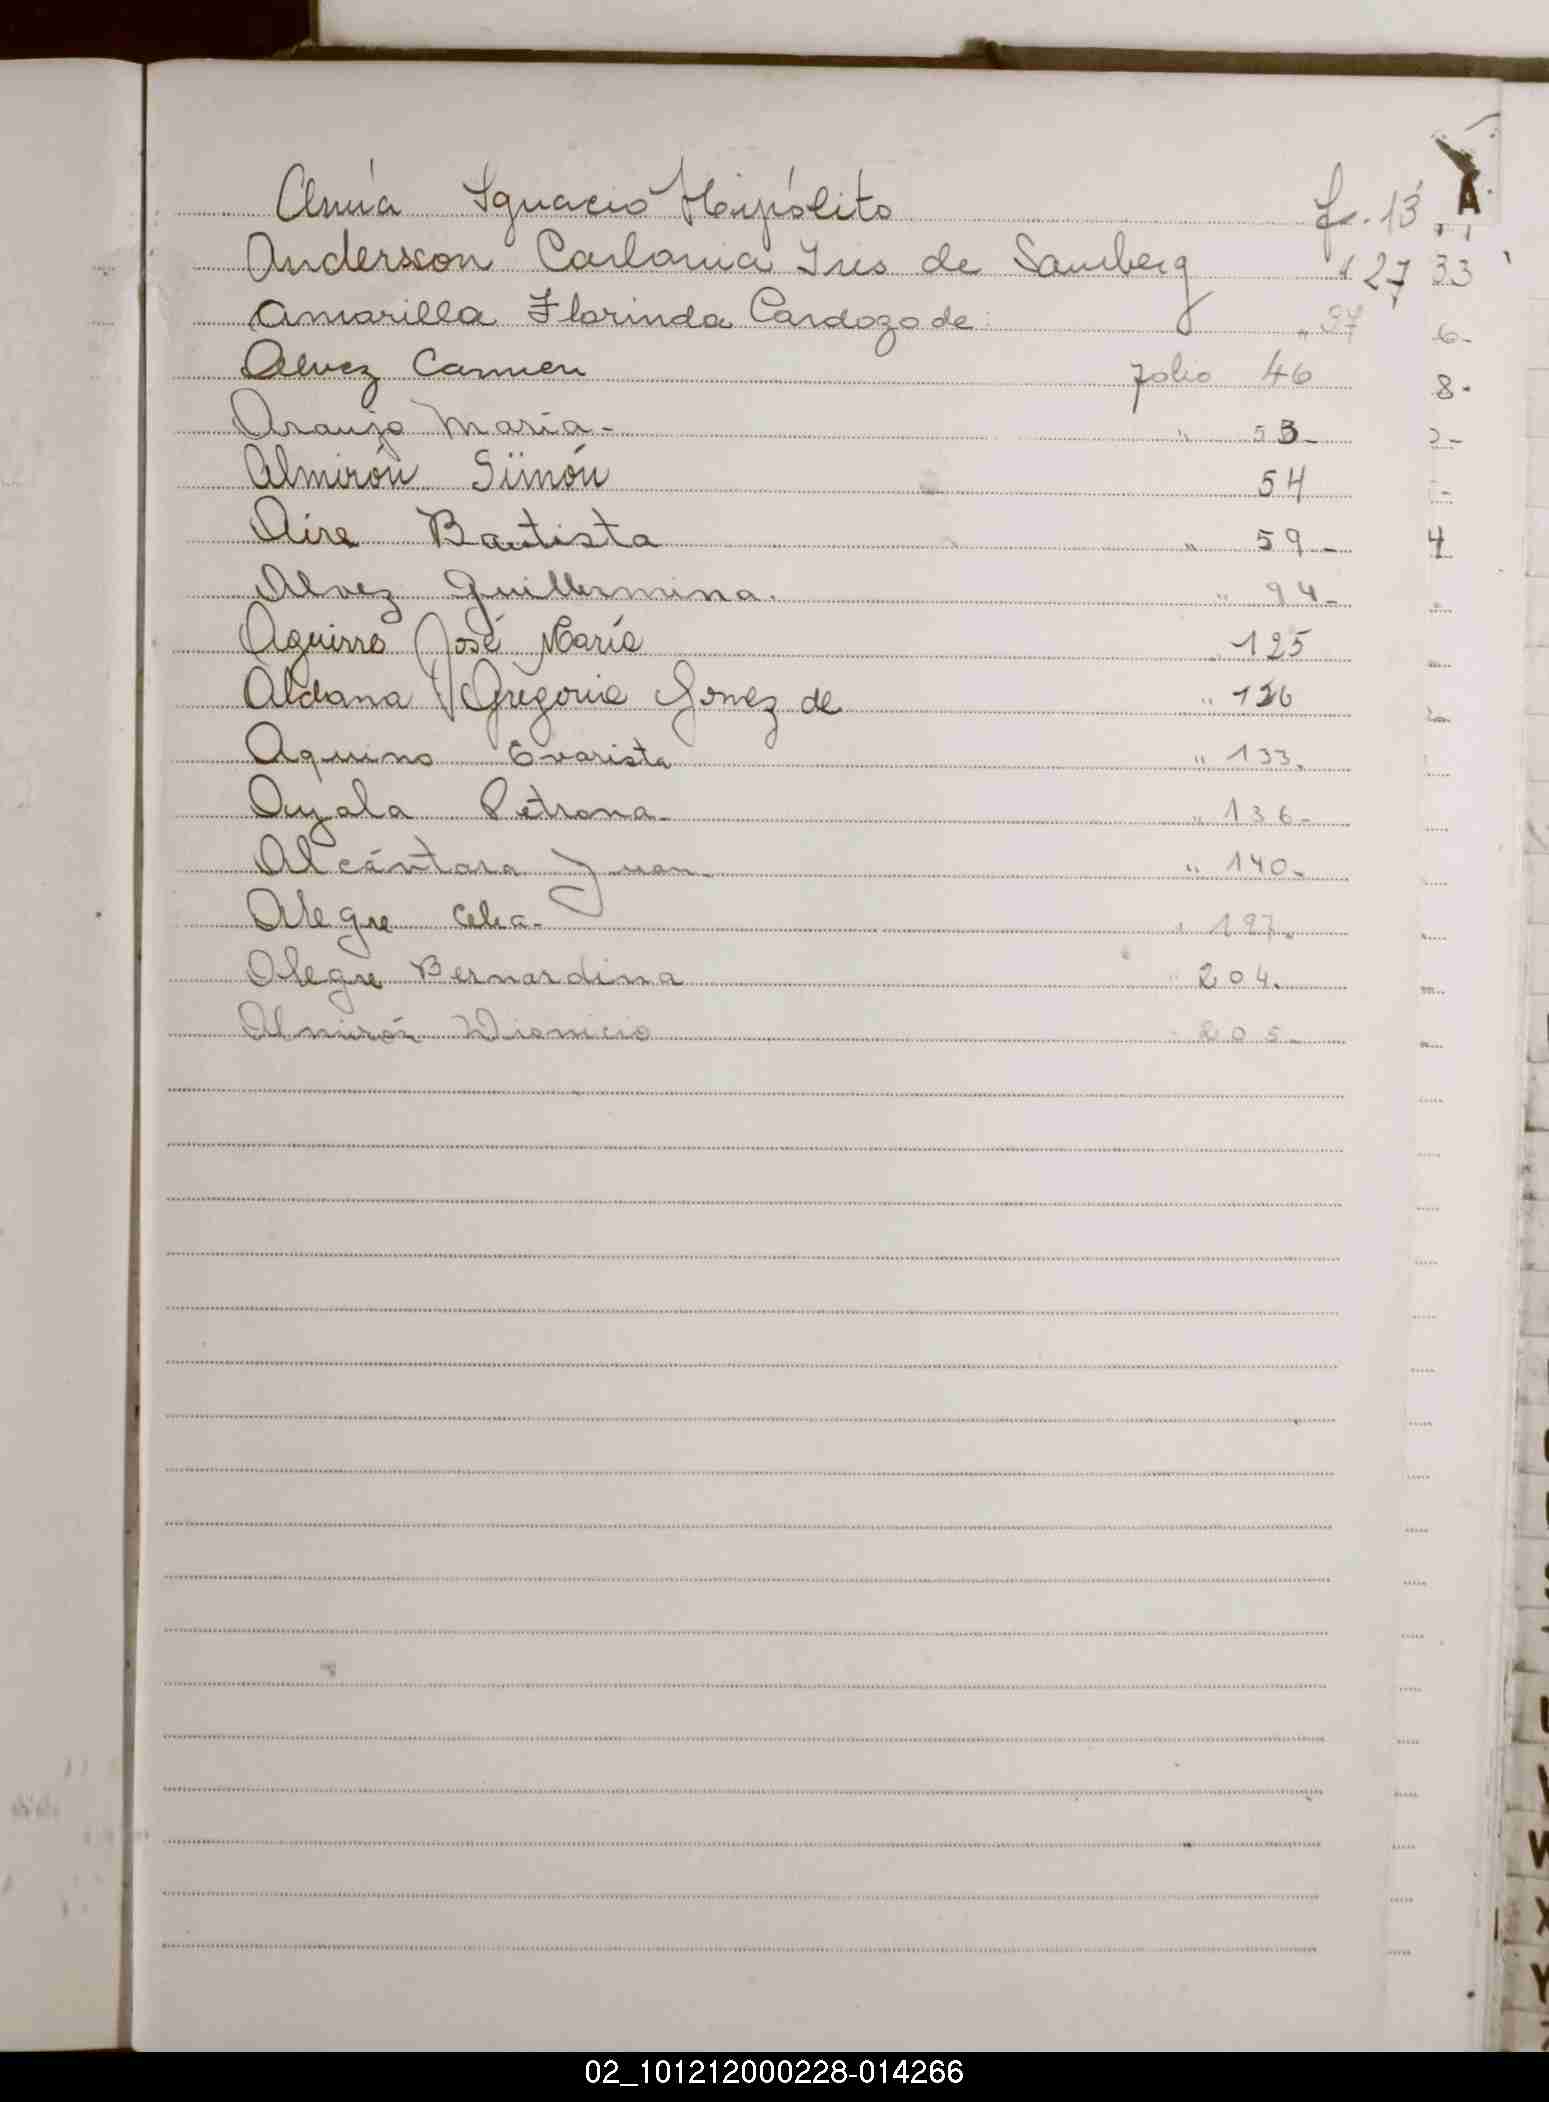 A
Amúa Ignacio Hipólito f. 13
Andersson Carlonia Iris de Samberg " 27 33
Amarilla Florinda Cardozo de " 37 6-
Alvez Carmen folio 46 8-
Araujo María- " 53-
Almirón Simón 54
Aire Bautista " 59- 4
Alvez Guillermina. " 94-
Aguirre José María " 125
Aldana Gregoria Gomez de " 126
Aquino Evarista " 133.
Ayala Petrona- " 136-
Alcántara Juan- " 140-
Alegre Celia- " 197.
Alegre Bernardina " 204.
Almirón Dionicio " 205-
W
X
Y
02_101212000228-014266